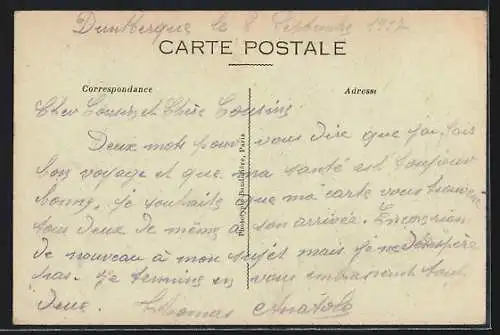 Dunkerque le 8 Septembre 1917
CARTE POSTALE
Correspondance
Adresse
Cher Cousin et Chère Cousine
Deux mots pour vous dire que j'ai fais
bon voyage et que ma santé est toujour
bonne, je souhaite que ma carte vous trouve
tous deux de même a son arrivée. Encor rien
de nouveau à mon sujet mais je ne désespère
pas. je termine en vous embrassant tout
deux. Thomas Anatole
Phototypie Baudinière, Paris